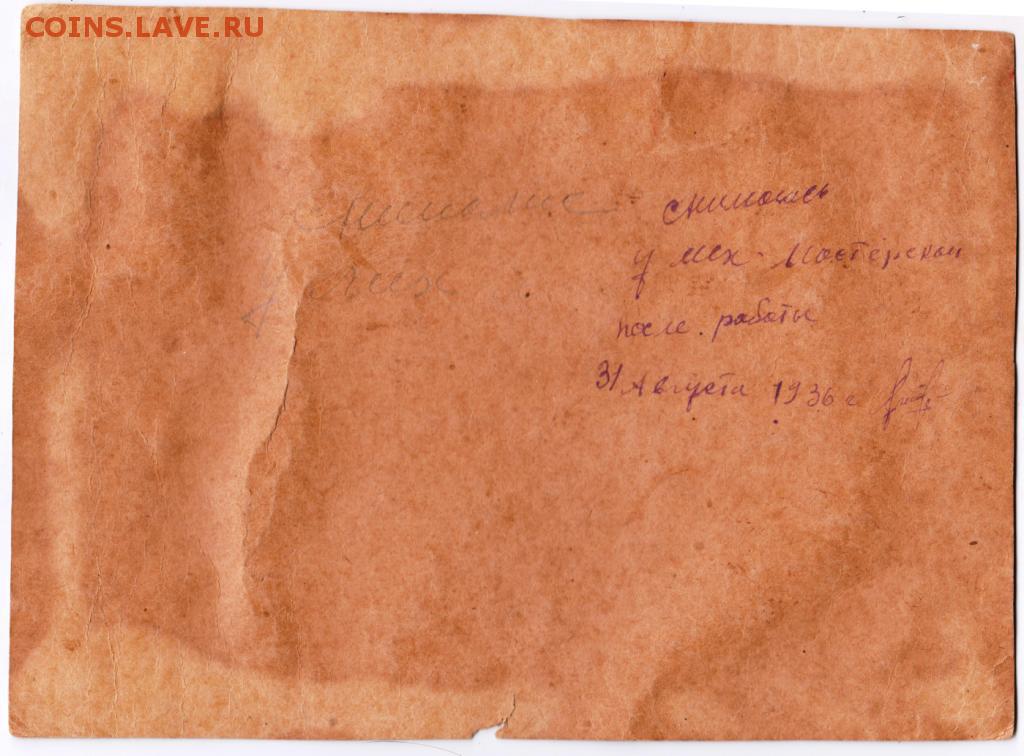 COINS.LAVE.RU
снимались
у мех
снимаась
у мех. Мастерской
после. работы
31 Августа 1936 г